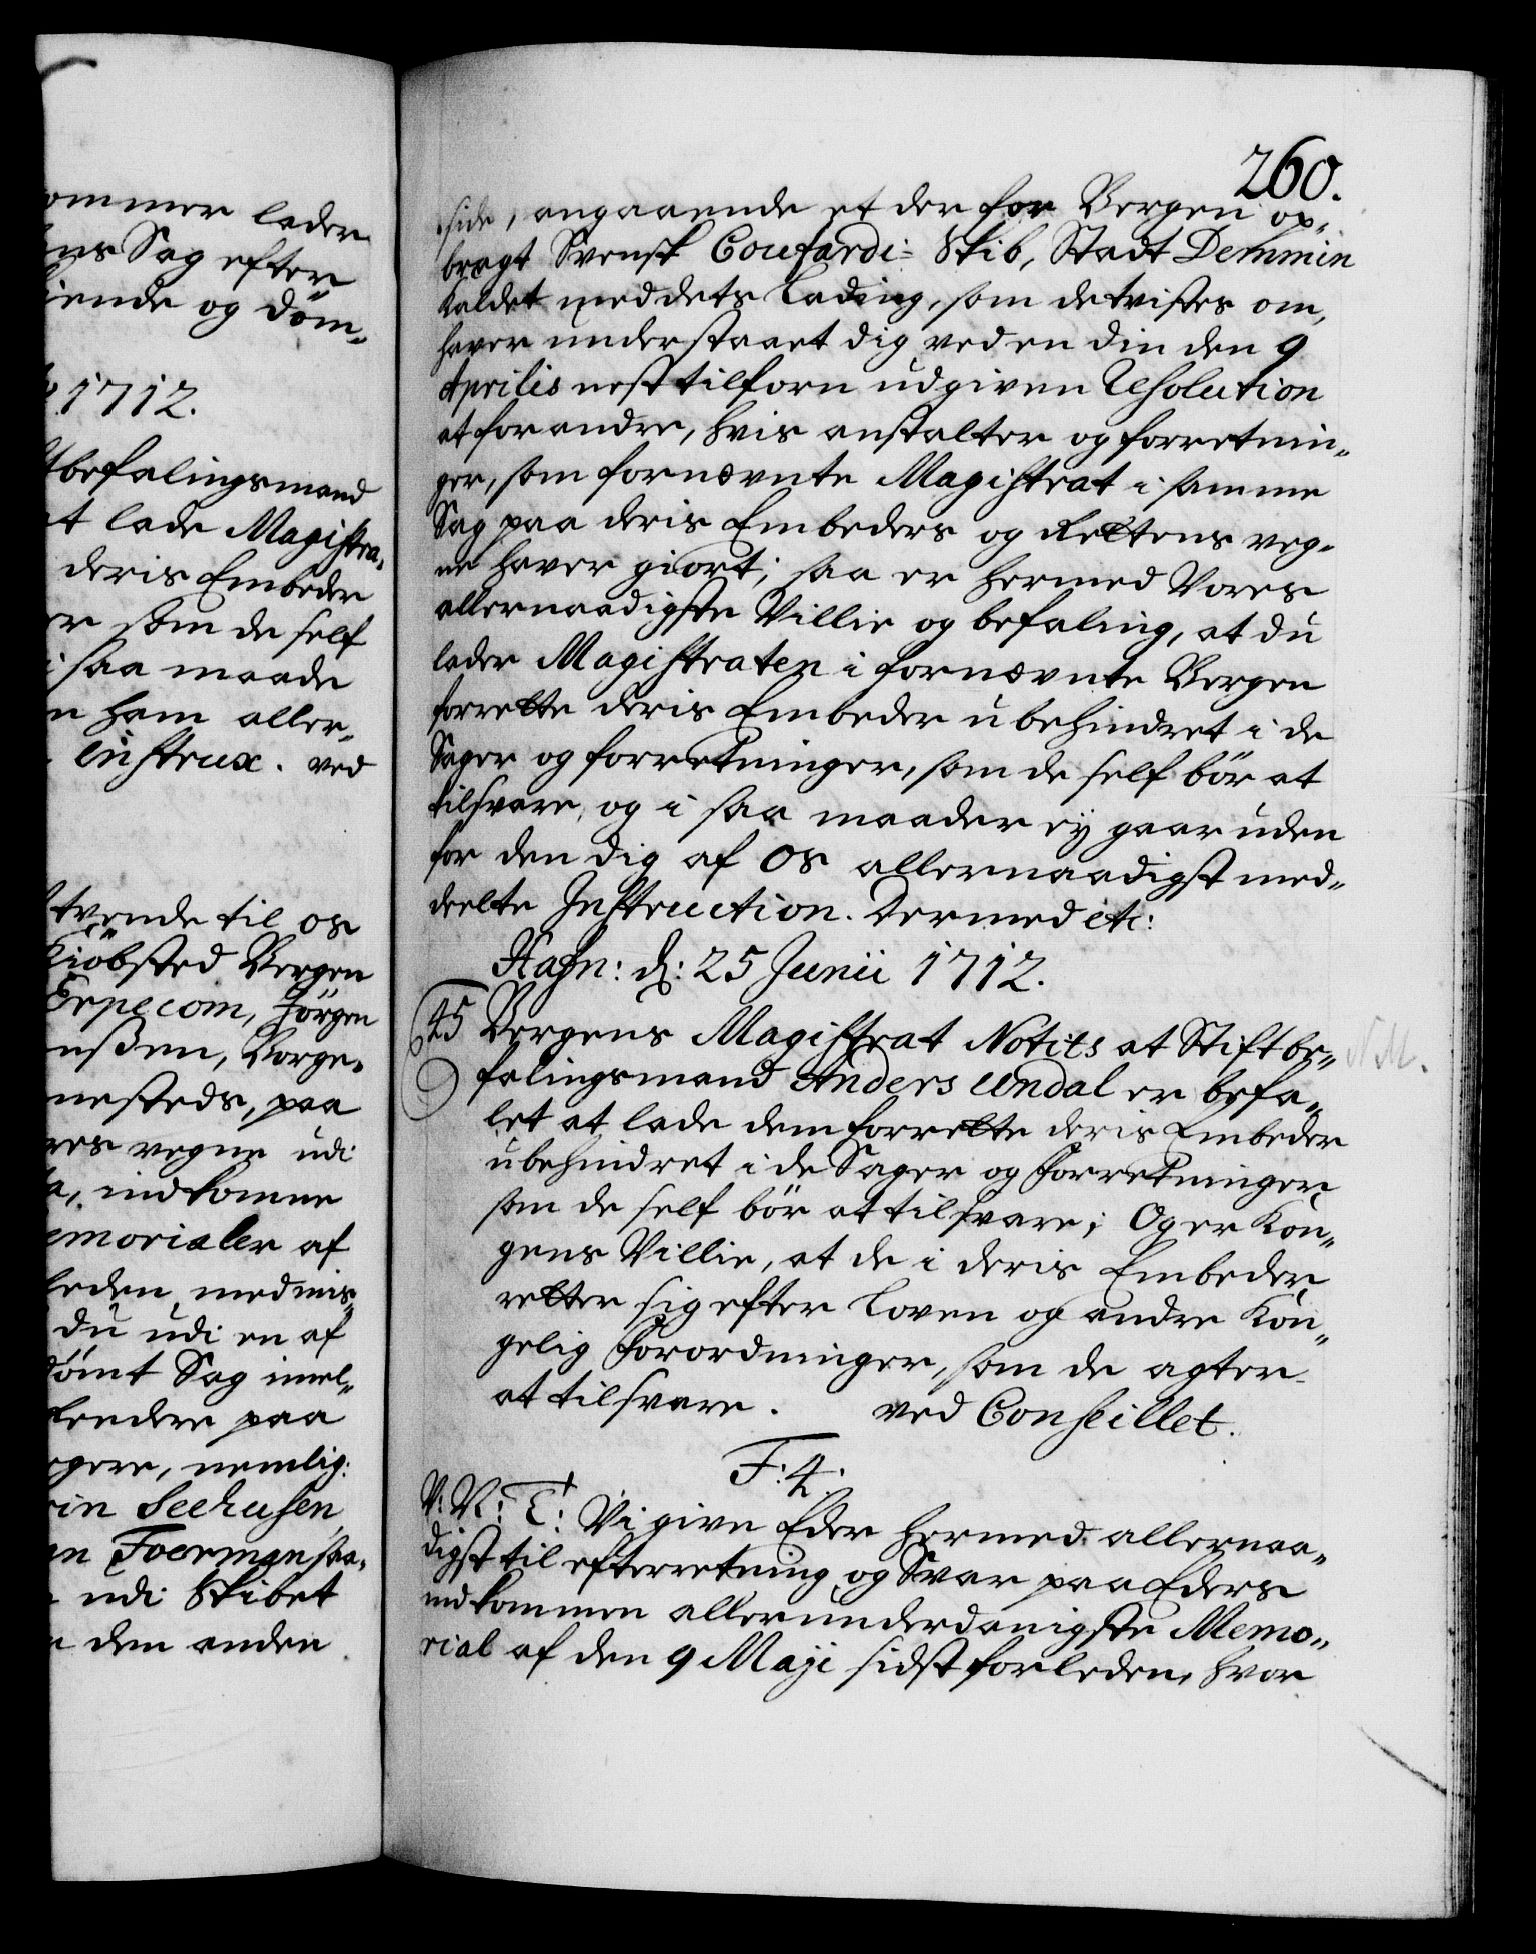 ommer lader
ns Sag efter
iende og döm„
1712.
tbefalingsmand
t lade Magistra„
deris Embeder
er som de self
i saa maade
n ham aller„
instrux. ved
tvende til os
Kiöbsted Bergen
Erpecom, Jörgen
nßen, Borge„
nesteds, paa
res vegne udi
a, indkomne
emorialer af
leden, med mis„
du udi en af
dömt Sag imel„
lendere paa
gere, nemlig:
rin Seehusen
an Foermansaa„
udi Skibet
den anden
260.
side, angaaende et der for Bergen op„
bragt Svensk Coufardi= Skib, Stadt Demmin
kaldet med dets Lading, som de tvistes om,
haver understaaet dig ved en din den 9
Aprilis nest tilforn udgiven Resolution
at forandre, hvis anstalter og forretnin„
ger, som fornævnte Magistrat i samme
Sag paa deris Embeders og Rettens veg„
ne haver giort; saa er hermed Vores
allernaadigste Villie og befaling, at du
lader Magistraten i fornævnte Bergen
forrette deris Embeder ubehindret i de
Sager og forretninger, som de self bör at
tilsvare, og i saa maader ey gaar uden
for den dig af os allernaadigst med„
deelte Instruction. Dermed etc:
Hafn: d: 25 Junii 1712.
45 Bergens Magistrat Notits at Stiftbe„
NM.
falingsmand Anders Undal er befa„
let at lade dem forrette deris Embeder
ubehindret i de Sager og Forretninger,
som de self bör at tilsvare; Og er Kon„
gens Villie, at de i deris Embeder
retter sig efter Loven og andre Kon„
gelig Forordninger, som de agter
at tilsvare. ved Conseillet.
F: 4.
V: N: T: Vi give Eder hermed allernaa„
digst til efterretning og Svar paa Eders
indkommen allerunderdanigste Memo„
rial af den 9 Maji sidstforleden, hvor